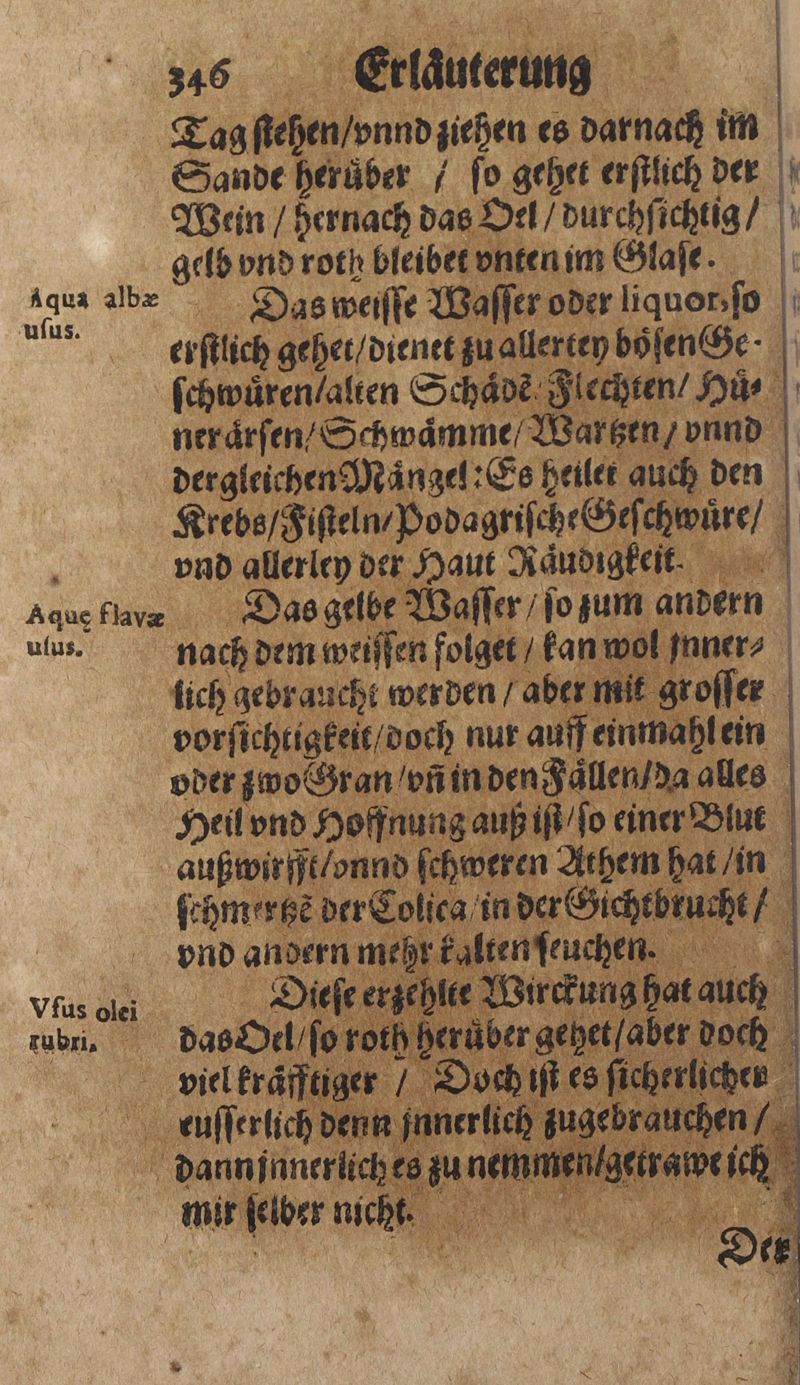 346 Erlåuterung
Tag ſtehen/vnnd ziehen es darnach im
Sande herůber / ſo gehet erſtlich der
Wein / hernach das Oel / durchſichtig /
gelb vnd roth bleibet vnten im Glaſe.
Aqua albæ
uſus.
Das weiſſe Waſſer oder liquor, ſo
erſtlich gehet/dienet zu allerley bôſen Ge-
ſchwůren/alten Schådē Flechten/ Hů-
nerårſen/Schwåmme/Wartzen/vnnd
dergleichen Mångel: Es heilet auch den
Krebs/Fiſteln/Podagriſche Geſchwůre/
vnd allerley der Haut Råudigkeit.
Aquę flavæ
uſus.
Das gelbe Waſſer / ſo zum andern
nach dem weiſſen folget / kan wol jnner-
lich gebraucht werden / aber mit groſſer
vorſichtigkeit/doch nur auff einmahl ein
oder zwo Gran/vñ in den Fållen/da alles
Heil vnd Hoffnung auß iſt/ſo einer Blut
außwirfft/vnnd ſchweren Athem hat/in
ſchmertzē der Colica/in der Gichtbrucht/
vnd andern mehr kalten ſeuchen.
Vſus olei
rubri.
Dieſe erzehlte Wirckung hat auch
das Oel/ſo roth herůber gehet/aber doch
viel kråfftiger / Doch iſt es ſicherlicher
euſſerlich denn jnnerlich zugebrauchen /
dann jnnerlich es zu nemmen/getrawe ich
mir ſelber nicht.
Der